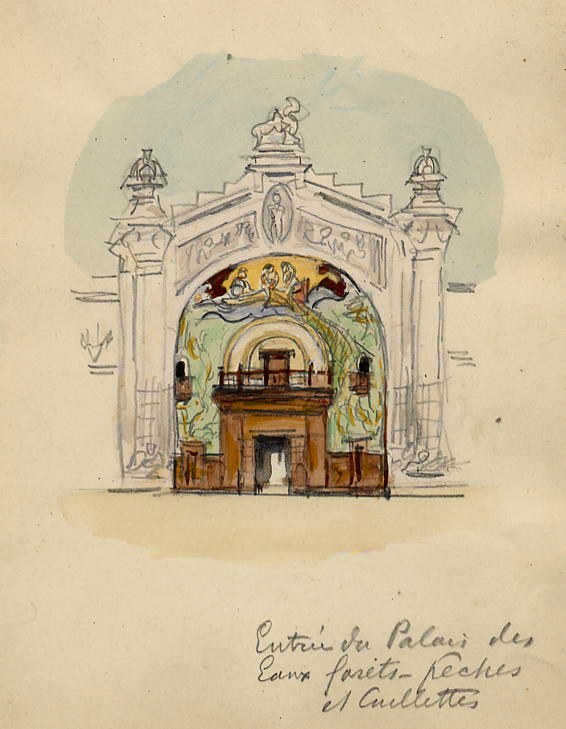 Entrée du Palais des
Eaux forêts - Pêches
et Cueillettes